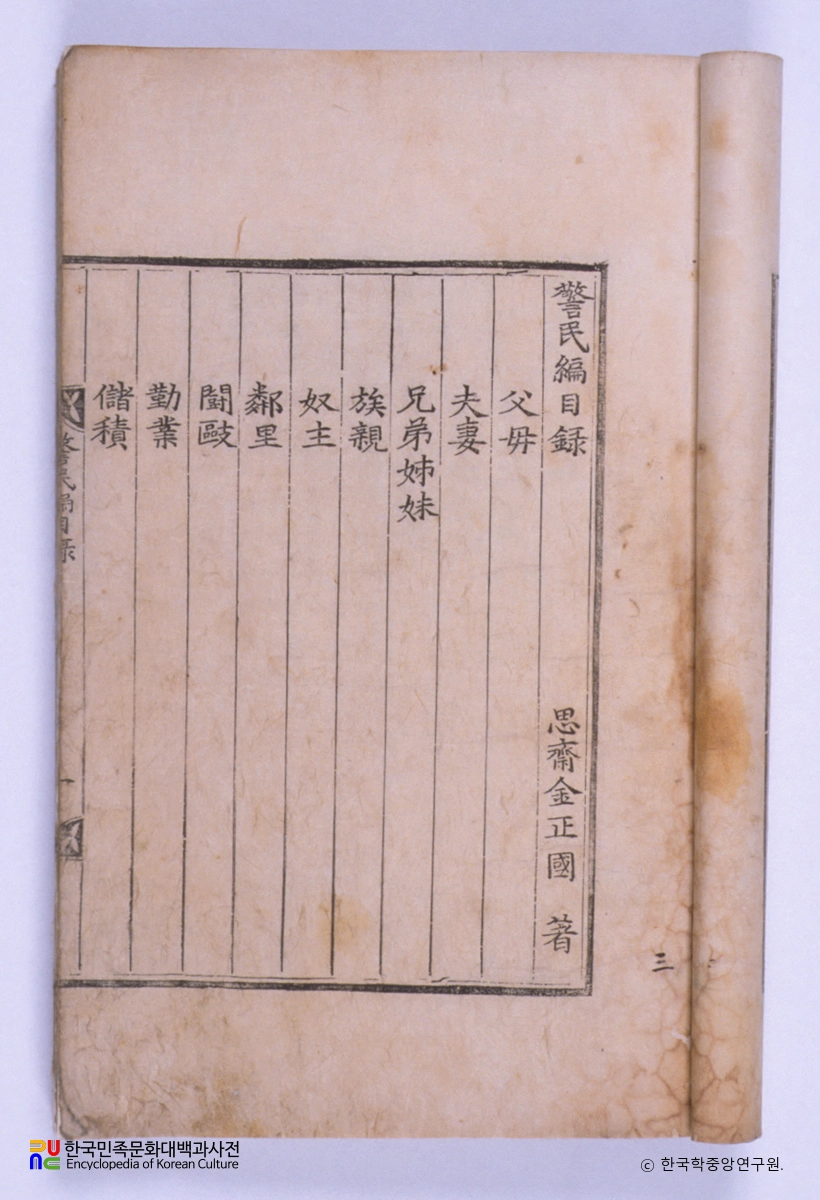 警民編目録
思齋金正國 著
父母
夫妻
兄弟姊妹
族親
奴主
鄰里
鬪毆
勤業
儲積
警民編目録
一
三
한국민족문화대백과사전
Encyclopedia of Korean Culture
© 한국학중앙연구원.